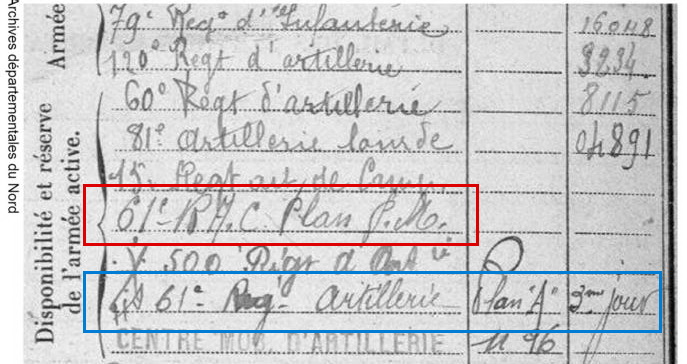 Archives départementales du Nord
Armée
Disponibilité et réserve
de l'armée active.
79e Regt d'Infanterie 16048
120e Regt d'artillerie 3234
60e Régt d'artillerie 8115
81e Artillerie lourde 04891
15e Regt art. de Camp.
61e R.A.C Plan P.M.
500 Régt d'Art ie
61e Reg. Artillerie Plan "A" 3me jour
CENTRE MOB. D'ARTILLERIE n 96